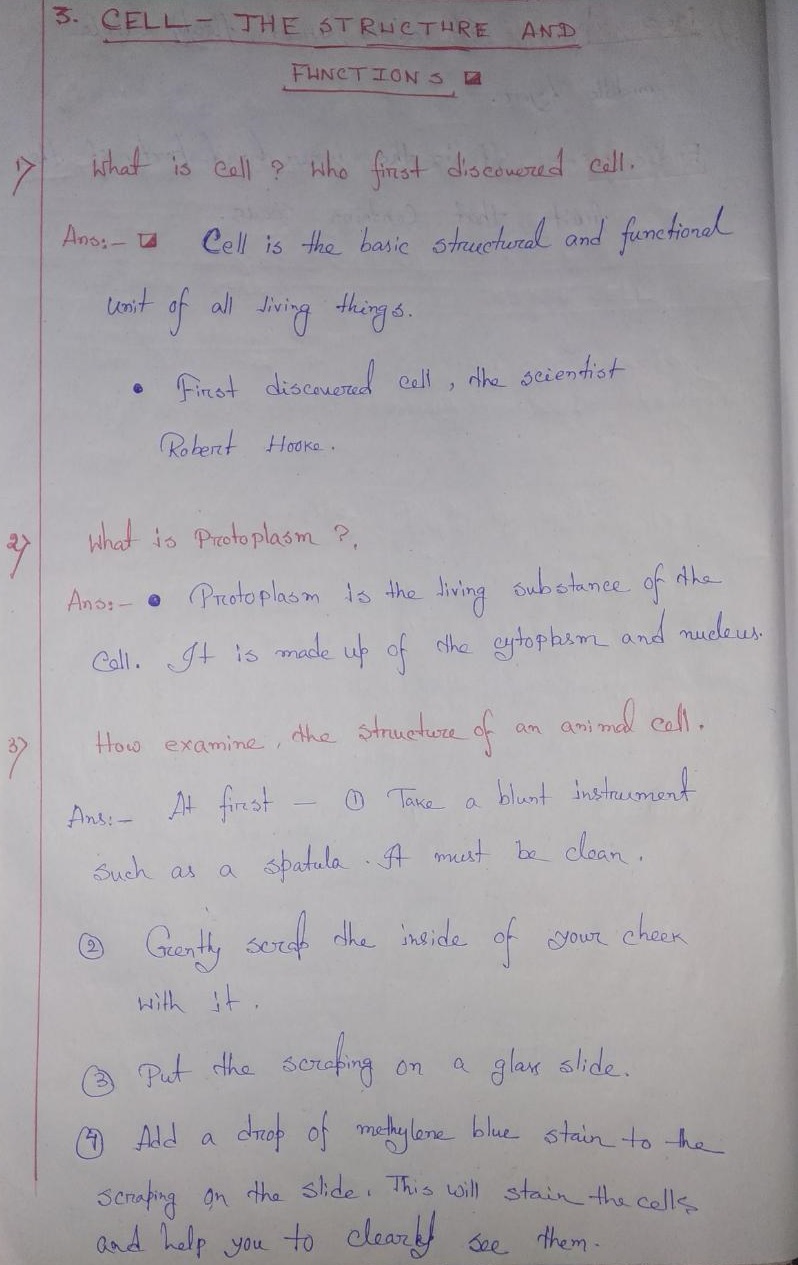 3. CELL - THE STRUCTURE AND
FUNCTIONS
1) What is cell ? Who first discovered cell.
Ans:- Cell is the basic structural and functional
unit of all living things.
• First discovered cell, the scientist
Robert Hooke.
2) What is Protoplasm ?.
Ans:- • Protoplasm is the living substance of the
Cell. It is made up of the cytoplasm and nucleus.
3) How examine, the structure of an animal cell.
Ans:- At first - ① Take a blunt instrument
such as a spatula. It must be clean.
② Gently scrap the inside of your cheek
with it.
③ Put the scraping on a glass slide.
④ Add a drop of methylene blue stain to the
scraping on the slide. This will stain the cells
and help you to clearly see them.